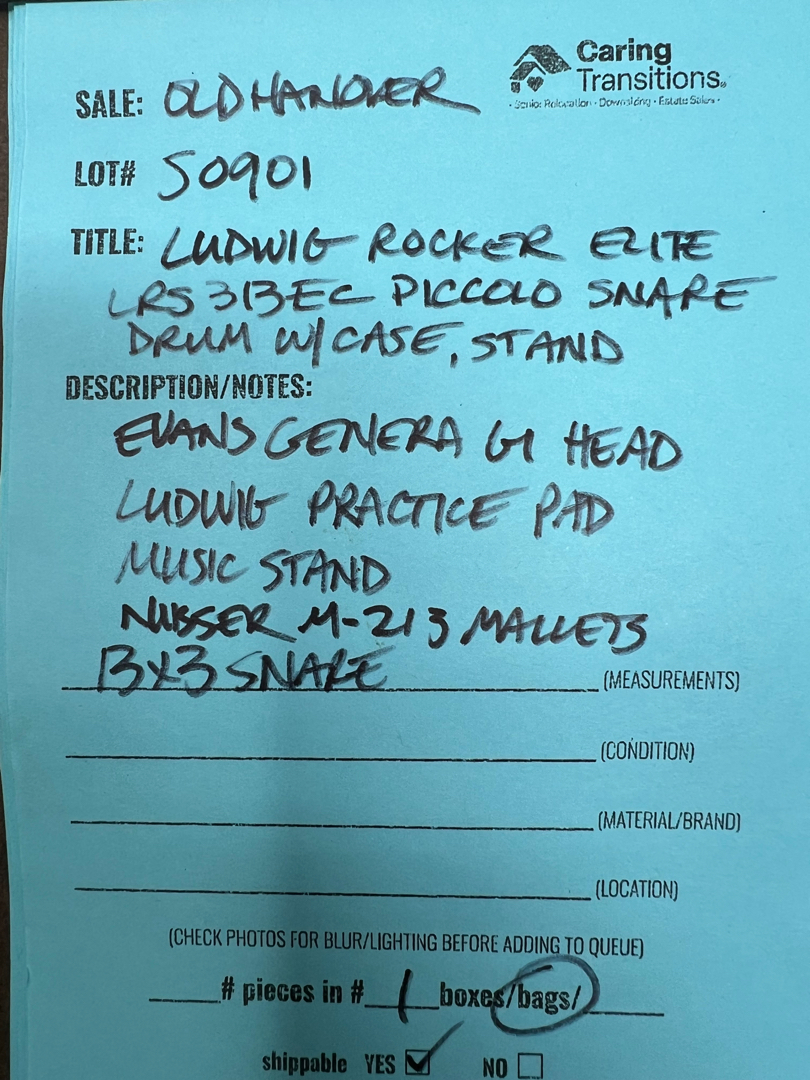 Caring
Transitions®
· Senior Relocation · Downsizing · Estate Sales ·
SALE: OLD HANOVER
LOT# S0901
TITLE: LUDWIG ROCKER ELITE
LRS313EC PICCOLO SNARE
DRUM W/CASE, STAND
DESCRIPTION/NOTES:
EVANS GENERA G1 HEAD
LUDWIG PRACTICE PAD
MUSIC STAND
M-213 MALLETS
13x3 SNARE (MEASUREMENTS)
(CONDITION)
(MATERIAL/BRAND)
(LOCATION)
(CHECK PHOTOS FOR BLUR/LIGHTING BEFORE ADDING TO QUEUE)
# pieces in # 1 boxes/bags/
shippable YES NO